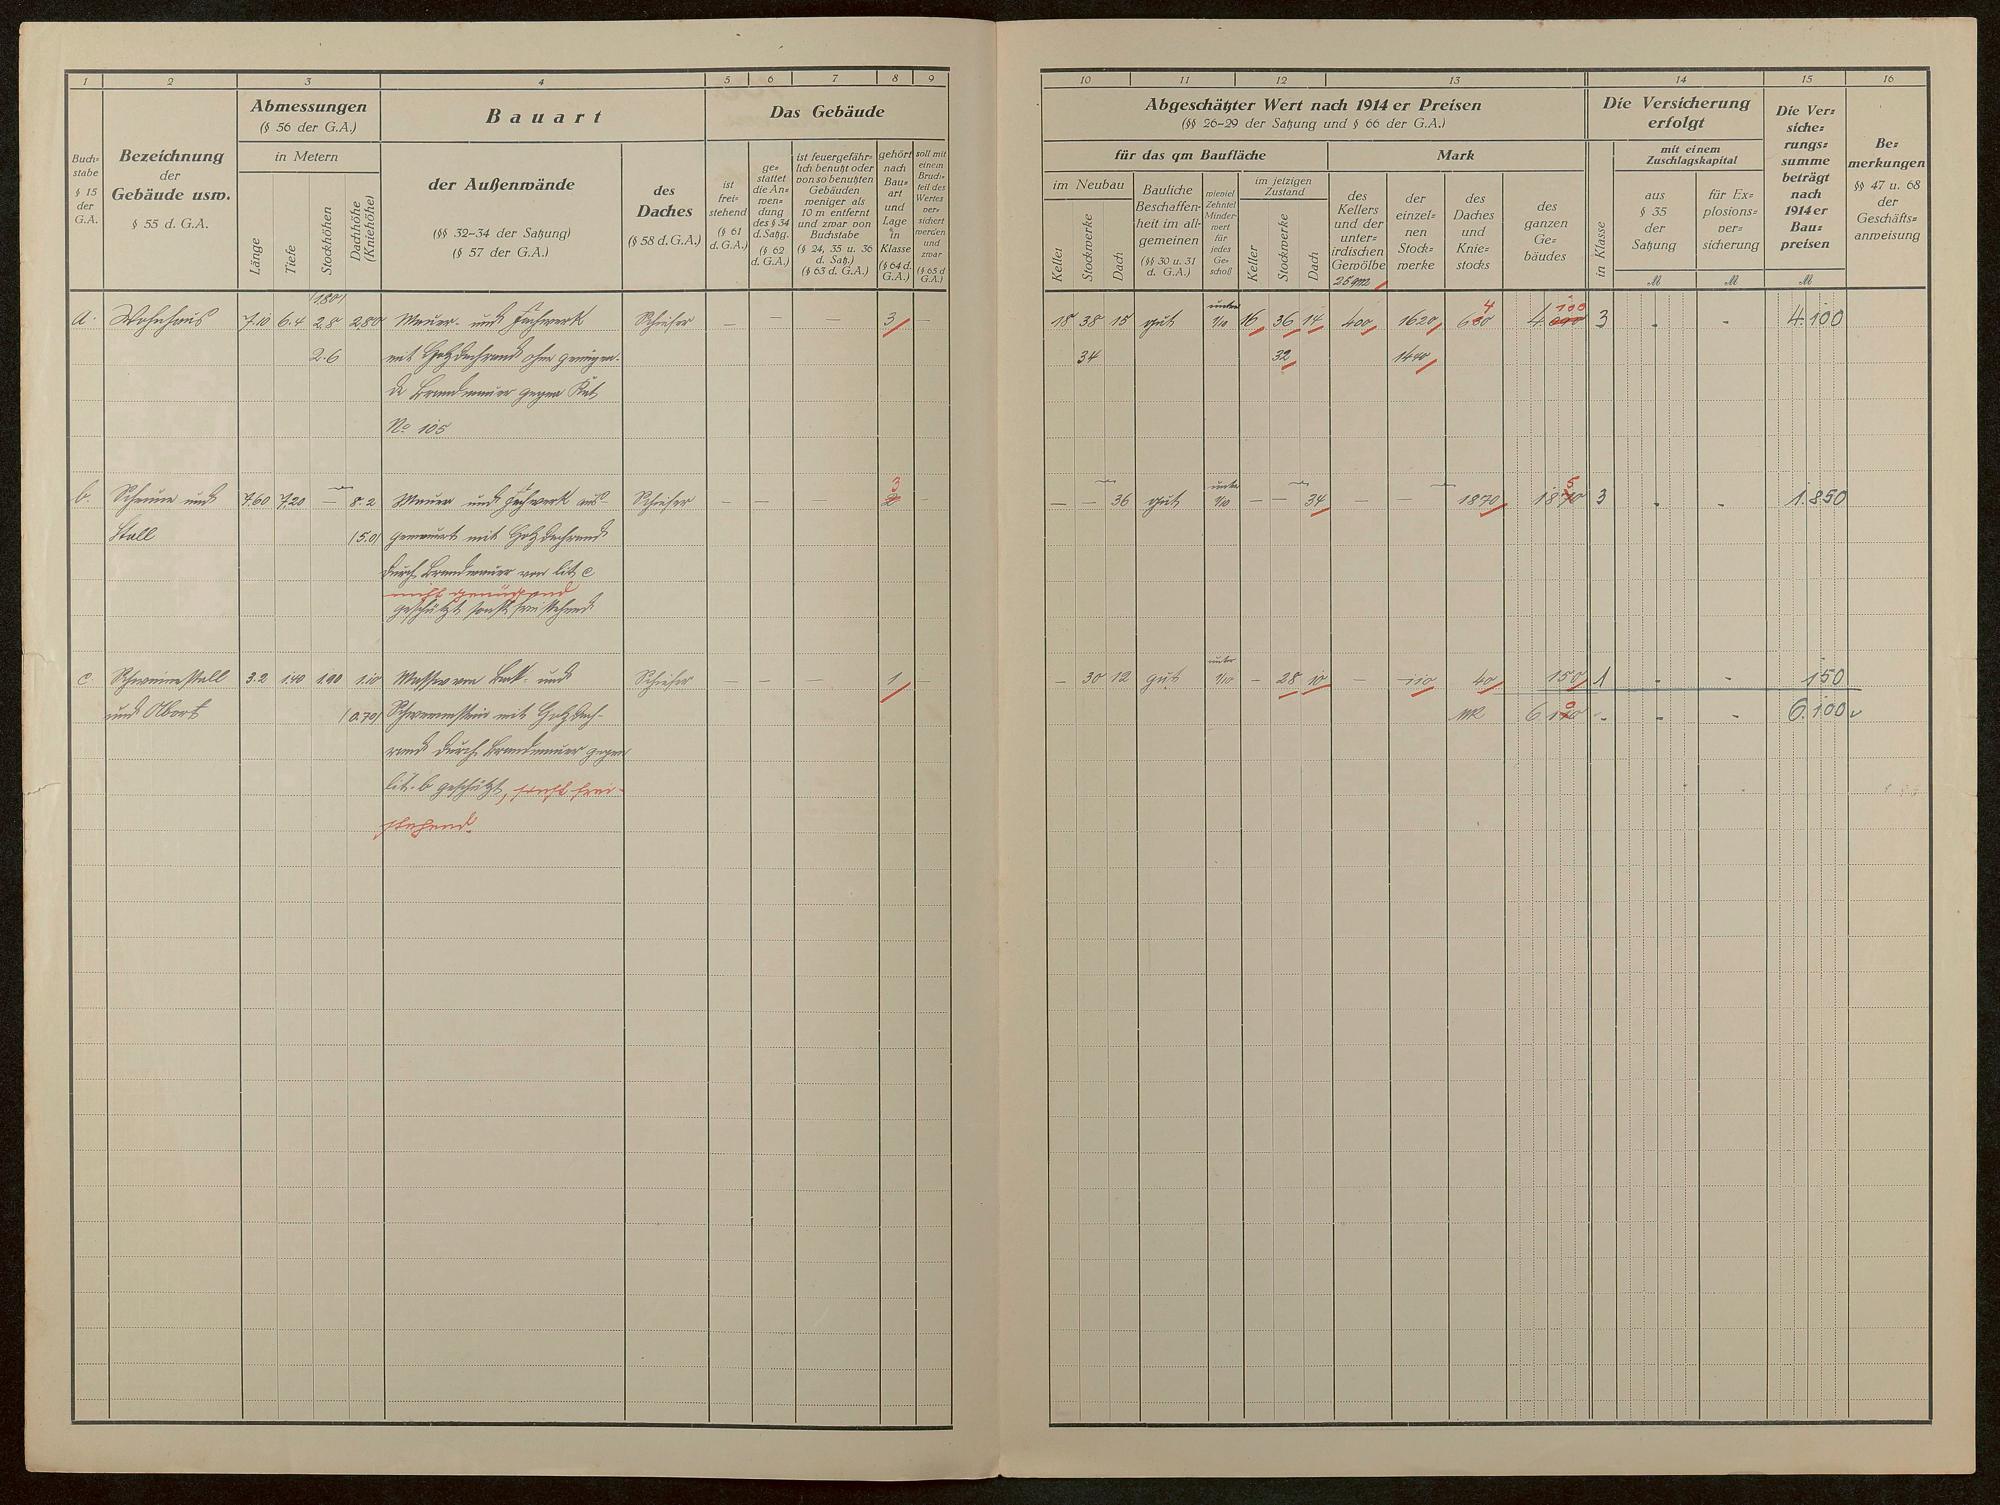 1 2 3 4 5 6 7 8 9
Buch=
stabe
§ 15
der
G.A.
Bezeichnung
der
Gebäude usw.
§ 55 d. G.A.
Abmessungen
(§ 56 der G.A.)
in Metern
Länge
Tiefe
Stockhöhen
Dachhöhe
(Kniehöhe)
Bauart
der Außenwände
(§§ 32–34 der Satzung)
(§ 57 der G.A.)
des
Daches
(§ 58 d. G.A.)
Das Gebäude
ist
frei=
stehend
(§ 61
d. G.A.)
ge=
stattet
die An=
wen=
dung
des § 34
d. Satzg.
(§ 62
d. G.A.)
ist feuergefähr=
lich benutzt oder
von so benutzten
Gebäuden
weniger als
10 m entfernt
und zwar von
Buchstabe
(§ 24, 35 u. 36
d. Satz.)
(§ 63 d. G.A.)
gehört
nach
Bau=
art
und
Lage
in
Klasse
(§ 64 d.
G.A.)
soll mit
einem
Bruch=
teil des
Wertes
ver=
sichert
werden
und
zwar
(§ 65 d
G.A.)
(1.80)
a. Wohnhaus 7.10 6.4 2.8 2.80 Mauer- und Fachwerk Schiefer — — — 3 —
2.6 mit Holzdachrand ohne genügen-
de Brandmauer gegen Kat
No 105
3
b. Scheune und 7.60 7.20 — 8.2 Mauer und Fachwerk aus- Schiefer — — 2 -
Stall (5.0) gemauert mit Holzdachrand
durch Brandmauer von lit. c
nicht genügend
geschützt sonst freistehend
c Schweinestall 3.2 1.40 1.90 1.10 Massiv von Back- und Schiefer — — — 1 —
und Abort (0.70) Schwemmstein mit Holzdach-
rand durch Brandmauer gegen
lit. b geschützt, sonst frei-
stehend.
10 11 12 13 14 15 16
Abgeschätzter Wert nach 1914 er Preisen
(§§ 26–29 der Satzung und § 66 der G.A.)
für das qm Baufläche
Mark
im Neubau
Keller
Stockwerke
Dach
Bauliche
Beschaffen=
heit im all=
gemeinen
(§§ 30 u. 31
d. G.A.)
wieviel
Zehntel
Minder=
wert
für
jedes
Ge=
schoß
im jetzigen
Zustand
Keller
Stockwerke
Dach
des
Kellers
und der
unter=
irdischen
Gewölbe
25 qm
der
einzel=
nen
Stock=
werke
des
Daches
und
Knie=
stocks
des
ganzen
Ge=
bäudes
Die Versicherung
erfolgt
in Klasse
mit einem
Zuschlagskapital
aus
§ 35
der
Satzung
für Ex=
plosions=
ver=
sicherung
ℳ ℳ ℳ
Die Ver=
siche=
rungs=
summe
beträgt
nach
1914 er
Bau=
preisen
Be=
merkungen
§§ 47 u. 68
der
Geschäfts=
anweisung
unter 4 100
18 38 15 gut 1/10 16 36 14 400 1620 3 - - 4.100
34 32 1440
unter 5
— — 36 gut 1/10 — — 34 — — 1870 1870 3 - - 1.850
unter
— 30 12 gut 1/10 — 28 10 — 110 40 150 1 - - 150
- - 6.100